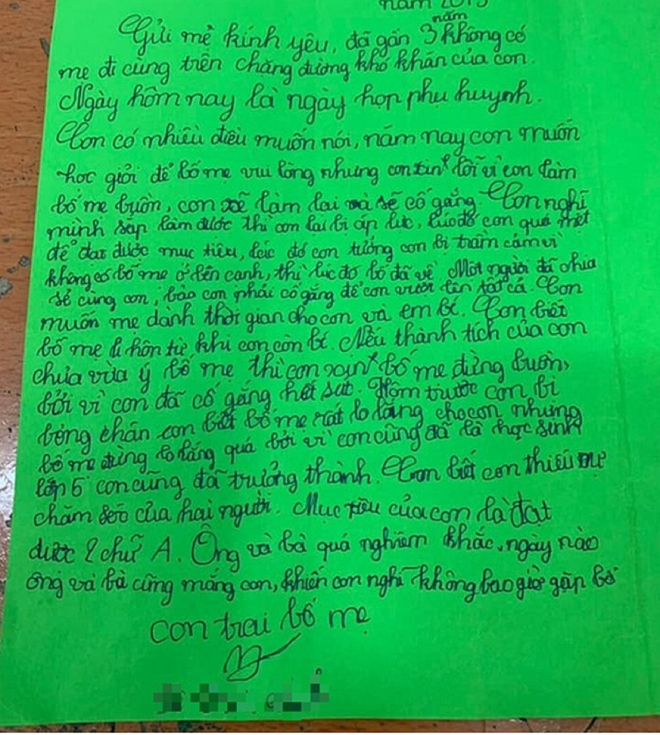 năm 2019
năm
Gửi mẹ kính yêu, đã gần 3 không có
mẹ đi cùng trên chặng đường khó khăn của con.
Ngày hôm nay là ngày họp phụ huynh.
Con có nhiều điều muốn nói, năm nay con muốn
học giỏi để bố mẹ vui lòng nhưng con xin lỗi vì con làm
bố mẹ buồn, con sẽ làm lại và sẽ cố gắng. Con nghĩ
mình sắp làm được thì con lại bị áp lực, lúc đó con quá mệt
để đạt được mục tiêu, lúc đó con tưởng con bị trầm cảm vì
không có bố mẹ ở bên cạnh, thì lúc đó bố đã về. Một người đã chia
sẻ cùng con, bảo con phải cố gắng để con vươn lên tất cả. Con
muốn mẹ dành thời gian cho con và em bé. Con biết
bố mẹ li hôn từ khi con còn bé. Nếu thành tích của con
chưa vừa ý bố mẹ thì con xin bố mẹ đừng buồn,
bởi vì con đã cố gắng hết sức. Hôm trước con bị
bỏng chân con biết bố mẹ rất lo lắng cho con nhưng
bố mẹ đừng lo lắng quá bởi vì con cũng đã là học sinh
lớp 5 con cũng đã trưởng thành. Con biết con thiếu sự
chăm sóc của hai người. Mục tiêu của con là đạt
được 2 chữ A. Ông và bà quá nghiêm khắc, ngày nào
ông và bà cũng mắng con, khiến con nghĩ không bao giờ gặp bố
con trai bố mẹ